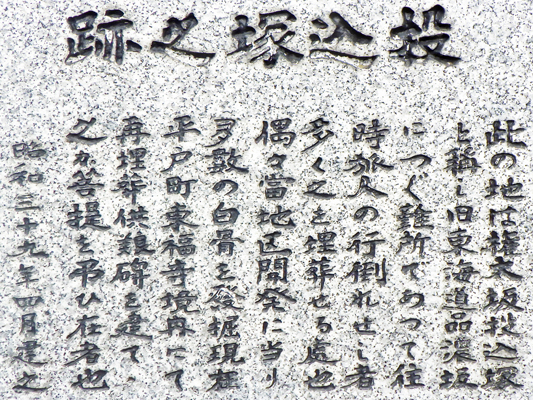 投込塚之跡
此の地は権太坂投込塚
と稱し旧東海道品濃坂
につぐ難所であつて往
時旅人の行倒れせし者
多く之を埋葬せる處也
偶々當地区開発に当り
多数の白骨を發掘現在
平戸町東福寺境内にて
再埋葬供養碑を建て
之が菩提を弔ひ在者也
昭和三十九年四月建之